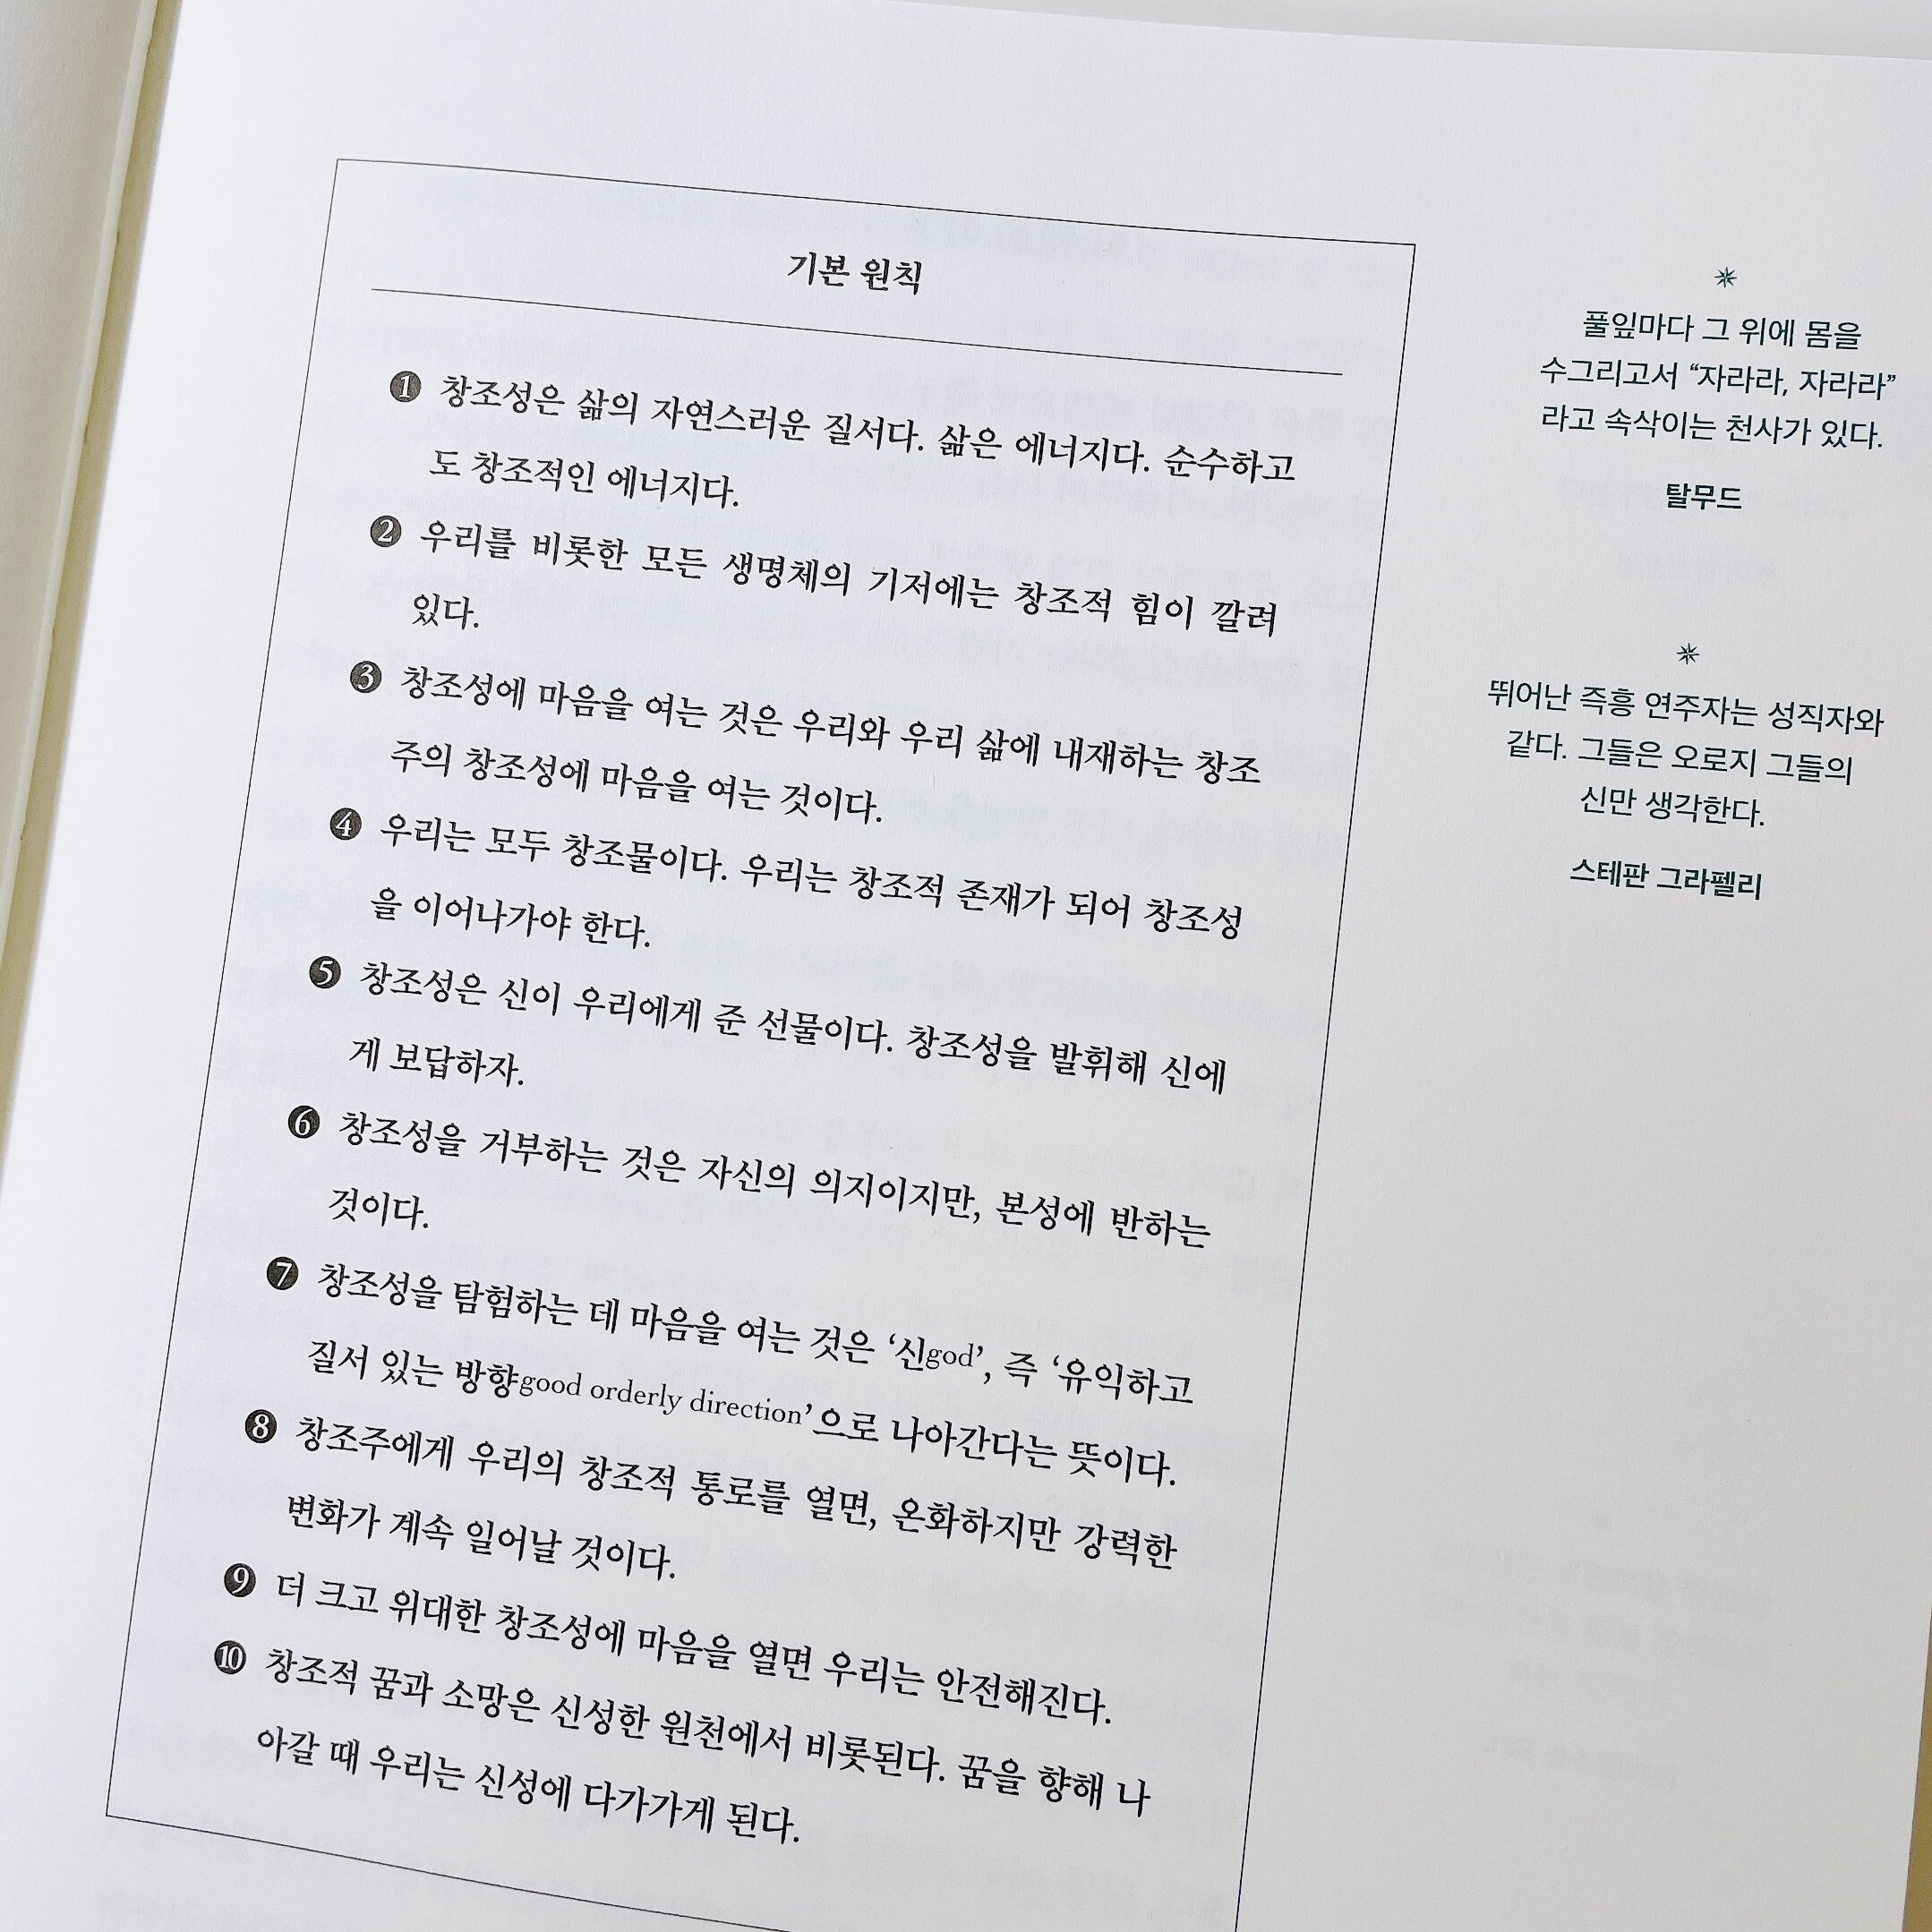 기본 원칙
❶ 창조성은 삶의 자연스러운 질서다. 삶은 에너지다. 순수하고
도 창조적인 에너지다.
❷ 우리를 비롯한 모든 생명체의 기저에는 창조적 힘이 깔려
있다.
❸ 창조성에 마음을 여는 것은 우리와 우리 삶에 내재하는 창조
주의 창조성에 마음을 여는 것이다.
❹ 우리는 모두 창조물이다. 우리는 창조적 존재가 되어 창조성
을 이어나가야 한다.
❺ 창조성은 신이 우리에게 준 선물이다. 창조성을 발휘해 신에
게 보답하자.
❻ 창조성을 거부하는 것은 자신의 의지이지만, 본성에 반하는
것이다.
❼ 창조성을 탐험하는 데 마음을 여는 것은 ‘신god’, 즉 ‘유익하고
질서 있는 방향good orderly direction’으로 나아간다는 뜻이다.
❽ 창조주에게 우리의 창조적 통로를 열면, 온화하지만 강력한
변화가 계속 일어날 것이다.
❾ 더 크고 위대한 창조성에 마음을 열면 우리는 안전해진다.
❿ 창조적 꿈과 소망은 신성한 원천에서 비롯된다. 꿈을 향해 나
아갈 때 우리는 신성에 다가가게 된다.
풀잎마다 그 위에 몸을
수그리고서 “자라라, 자라라”
라고 속삭이는 천사가 있다.
탈무드
뛰어난 즉흥 연주자는 성직자와
같다. 그들은 오로지 그들의
신만 생각한다.
스테판 그라펠리